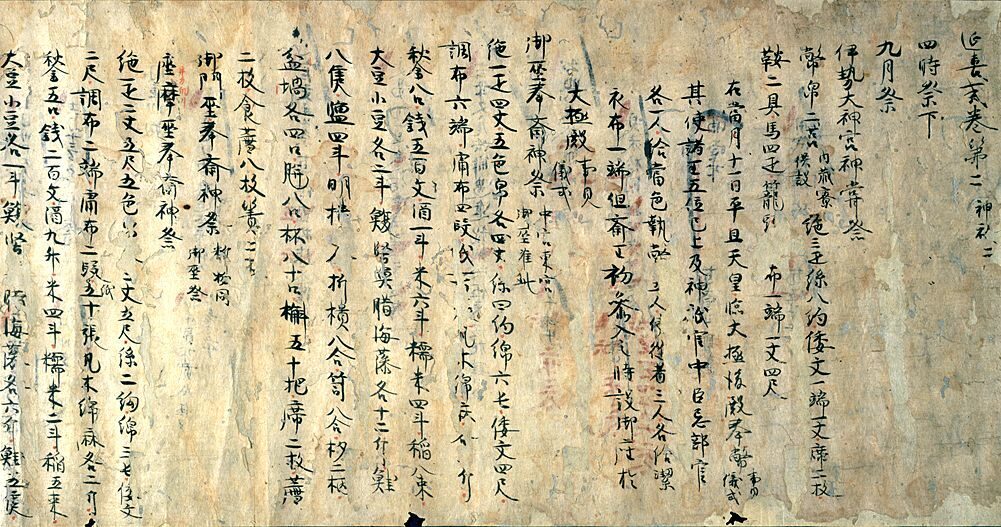 延喜式巻第二 神祇二
四時祭下
九月祭
伊勢大神宮神嘗祭
幣帛二笥 内蔵寮供設 絁三疋絲八絇倭文一端一丈席二枚
鞍二具馬四疋籠頭 布一端一丈四尺
在當月十一日平旦天皇臨大極後殿奉幣 事見儀式
其使諸王五位已上及神祇官中臣忌部官
各一人給當色執幣 三人 者三人各給潔
衣布一端但齋王初參入之時設御座於
大極殿 事見儀式
御巫奉齋神祭 中宮東宮御巫准此
絁一疋四丈五色帛各四丈絲四絇綿六屯倭文四尺
調布六端庸布四段 凡木綿 大 斤
秋釜八口錢五百文酒一斗米六斗糯米四斗稲八束
大豆小豆各二斗鰒堅魚腊海藻各十二斤鮭
八隻塩四斗明櫃 八折櫃八合筥八合杓二柄
盆堝各四口 八口杯八十口槲五十把席二枚薦
二枚食薦八枚簀二
御門巫奉齋神祭 御巫祭
座摩巫奉齋神祭
絁一疋二丈五尺五色 二丈五尺絲二絇綿三屯倭文
二尺調布二端庸布二段 五十張凡木綿麻各二斤
秋釜五口錢二百文酒九升米四斗糯米二斗稲五束
大豆小豆各一斗鰒堅 腊海藻各六斤鮭五隻